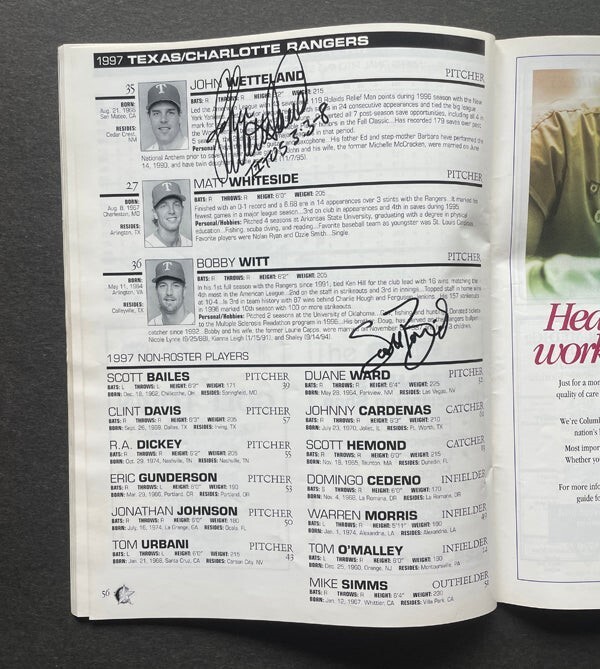 1997 TEXAS/CHARLOTTE RANGERS
35 JOHN WETTELAND PITCHER
BORN:
Aug. 21, 1966
San Mateo, CA
RESIDES:
Cedar Crest,
NM
BATS: R THROWS: R 215
27 MATT WHITESIDE PITCHER
BORN:
Aug. 8, 1967
Charleston, MO
RESIDES:
Arlington, TX
BATS: R THROWS: R HEIGHT: 6'0" WEIGHT: 205
Finished with an 0-1 record and a 6.68 era in 14 appearances over 3 stints with the Rangers. It marked his
fewest games in a major league season...3rd on club in appearances and 4th in saves during 1995.
Personal/Hobbies: Pitched 4 seasons at Arkansas State University, graduating with a degree in physical
education...Fishing, scuba diving, and reading...Favorite baseball team as youngster was St. Louis Cardinals.
Favorite players were Nolan Ryan and Ozzie Smith...Single.
36 BOBBY WITT PITCHER
BORN:
May 11, 1964
Arlington, VA
RESIDES:
Colleyville, TX
BATS: R THROWS: R HEIGHT: 6'2" WEIGHT: 205
In his 1st full season with the Rangers since 1991, tied Ken Hill for the club lead with 16 wins, matching the
4th most in the American League...2nd on the staff in strikeouts and 3rd in innings...Topped staff in home wins
at 10-4...Is 3rd in team history with 87 wins behind Charlie Hough and Ferguson Jenkins...His 157 strikeouts
in 1996 marked 10th season with 100 or more strikeouts.
Personal/Hobbies: Pitched 2 seasons at the University of Oklahoma
to the Multiple Sclerosis Readathon program in 1996...His brother, Doug,
catcher since 1992. Bobby and his wife, the former Laurie Capps, were married on November 3 children,
Nicole Lynne (9/25/88), Kianna Leigh (1/15/91), and Shaley (9/14/94).
1997 NON-ROSTER PLAYERS
SCOTT BAILES PITCHER 39
BATS: L THROWS: L HEIGHT: 6'2" WEIGHT: 171
BORN: Dec. 18, 1962, Chillicothe, OH RESIDES: Springfield, MO
CLINT DAVIS PITCHER 57
BATS: R THROWS: R HEIGHT: 6'3" WEIGHT: 205
BORN: Sept. 26, 1969, Dallas, TX RESIDES: Irving, TX
R.A. DICKEY PITCHER 55
BATS: R THROWS: R HEIGHT: 6'2" WEIGHT: 205
BORN: Oct. 29, 1974, Nashville, TN RESIDES: Nashville, TN
ERIC GUNDERSON PITCHER 53
BATS: R THROWS: L HEIGHT: 6'0" WEIGHT: 190
BORN: Mar. 29, 1966, Portland, OR RESIDES: Portland, OR
JONATHAN JOHNSON PITCHER 50
BATS: R THROWS: R HEIGHT: 6'0" WEIGHT: 180
BORN: July 16, 1974, La Grange, GA RESIDES: Ocala, FL
TOM URBANI PITCHER 43
BATS: L THROWS: L HEIGHT: 6'0" WEIGHT: 215
BORN: Jan. 21, 1968, Santa Cruz, CA RESIDES: Carson City, NV
DUANE WARD PITCHER
BATS: R THROWS: R HEIGHT: 6'4" WEIGHT: 225
BORN: May 28, 1964, Parkview, NM RESIDES: Las Vegas, NV
JOHNNY CARDENAS CATCHER
BATS: R THROWS: R HEIGHT: 6'3" WEIGHT: 210
BORN: July 23, 1970, Joliet, IL RESIDES: Ft. Worth, TX
SCOTT HEMOND CATCHER
BATS: R THROWS: R HEIGHT: 6'0" WEIGHT: 215
BORN: Nov. 18, 1965, Taunton, MA RESIDES: Dunedin, FL
DOMINGO CEDENO INFIELDER
BATS: R THROWS: R HEIGHT: 6'0" WEIGHT: 170
BORN: Nov. 4, 1968, La Romana, DR RESIDES: La Romana, DR
WARREN MORRIS INFIELDER
BATS: L THROWS: R HEIGHT: 5'11" WEIGHT: 190
BORN: Jan. 1, 1974, Alexandria, LA RESIDES: Alexandria, LA
TOM O'MALLEY INFIELDER
BATS: L THROWS: R HEIGHT: 6'0" WEIGHT: 190
BORN: Dec. 25, 1960, Orange, NJ RESIDES: Montoursville, PA
MIKE SIMMS OUTFIELDER
BATS: R THROWS: R HEIGHT: 6'4" WEIGHT: 230
BORN: Jan. 12, 1967, Whittier, CA RESIDES: Villa Park, CA
56
Hea
work
Just for a mo
quality of care
We're Colum
nation's l
Most impor
Whether yo
For more info
guide fo